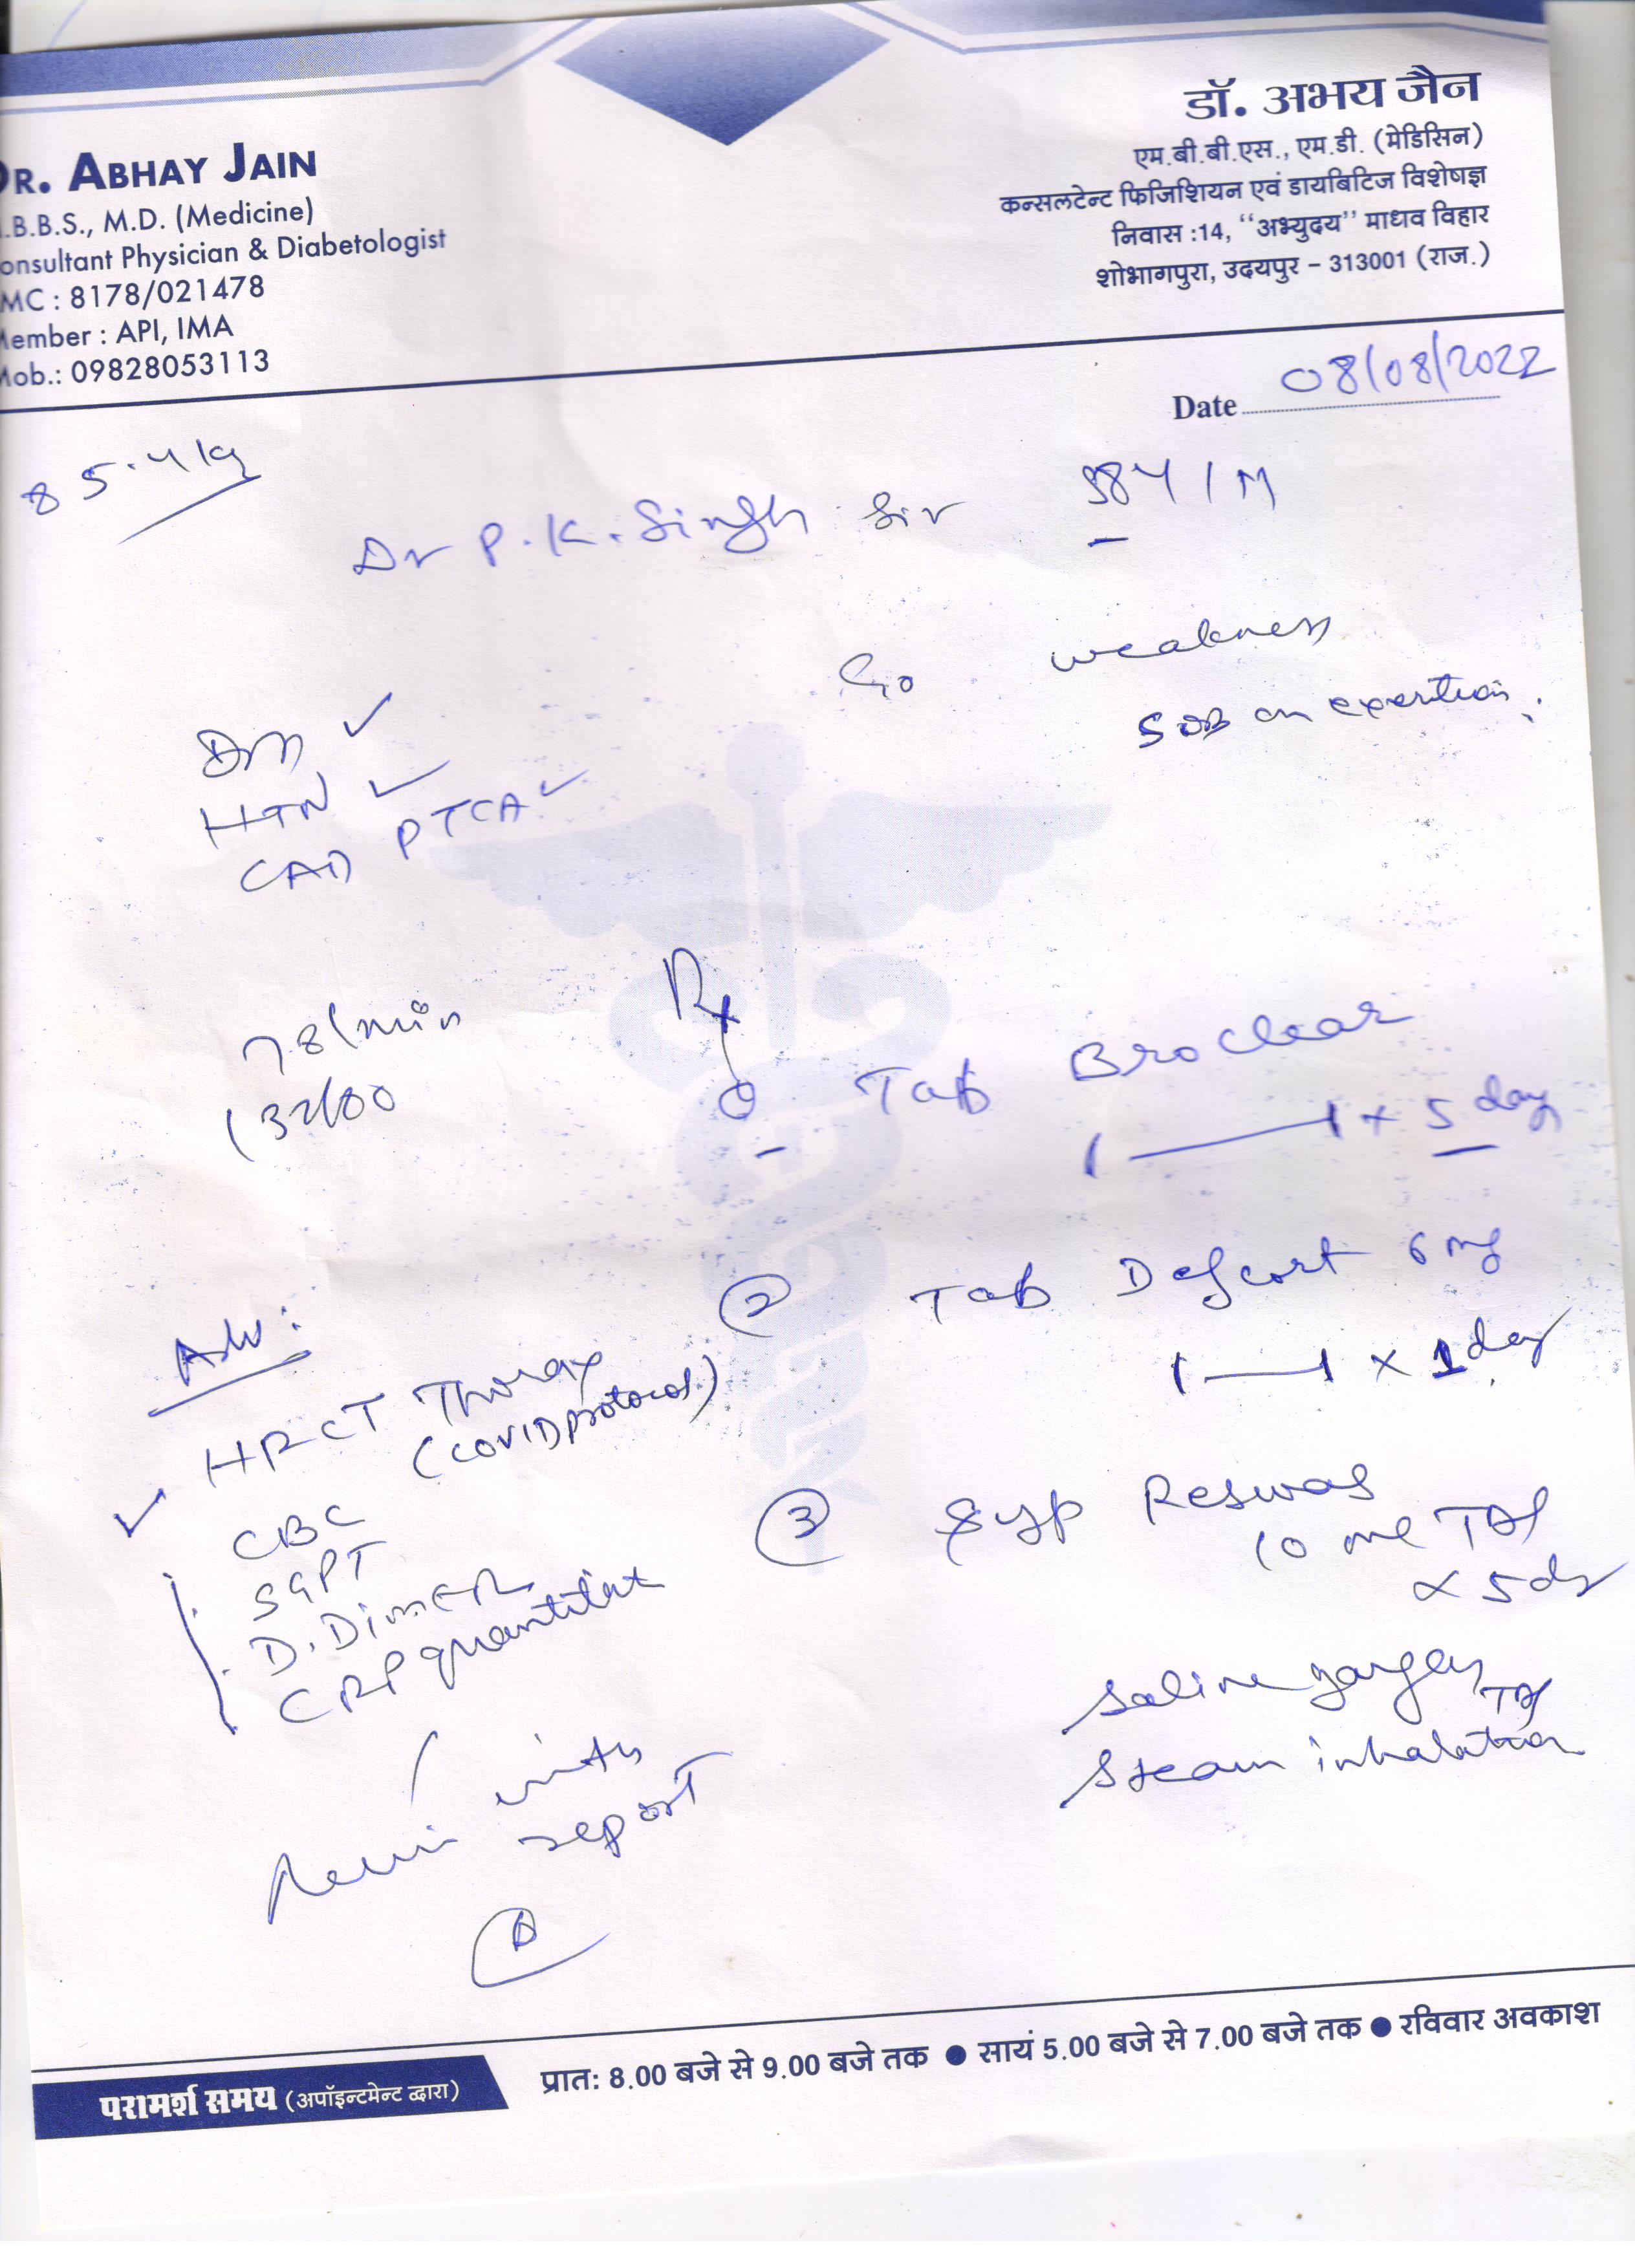 DR. ABHAY JAIN
.B.B.S., M.D. (Medicine)
onsultant Physician & Diabetologist
MC : 8178/021478
Member : API, IMA
Mob.: 09828053113
डॉ. अभय जैन
एम.बी.बी.एस., एम.डी. (मेडिसिन)
कन्सलटेन्ट फिजिशियन एवं डायबिटिज विशेषज्ञ
निवास :14, ‘‘अभ्युदय’’ माधव विहार
शोभागपुरा, उदयपुर - 313001 (राज.)
Date 08/08/2022
85.4 kg
Dr P.K. Singh Sir 58Y / M
C/o weakness
SOB on exertion.
DM ✓
HTN ✓
CAD PTCA ✓
78/min
132/80
Rx
① Tab Broclear
1 — 1 x 5 day
② Tab Defcort 6 mg
1 — 1 x 1 day
③ Syp Reswas
10 ml TDS
x 5 dy
Saline gargles TDS
Steam inhalation
Adv:
✓ HRCT Thorax
(COVID protocol)
CBC
SGPT
D. Dimer
CRP quantitat
Review with
report
परामर्श समय (अपॉइन्टमेन्ट द्वारा)
प्रातः 8.00 बजे से 9.00 बजे तक ● सायं 5.00 बजे से 7.00 बजे तक ● रविवार अवकाश